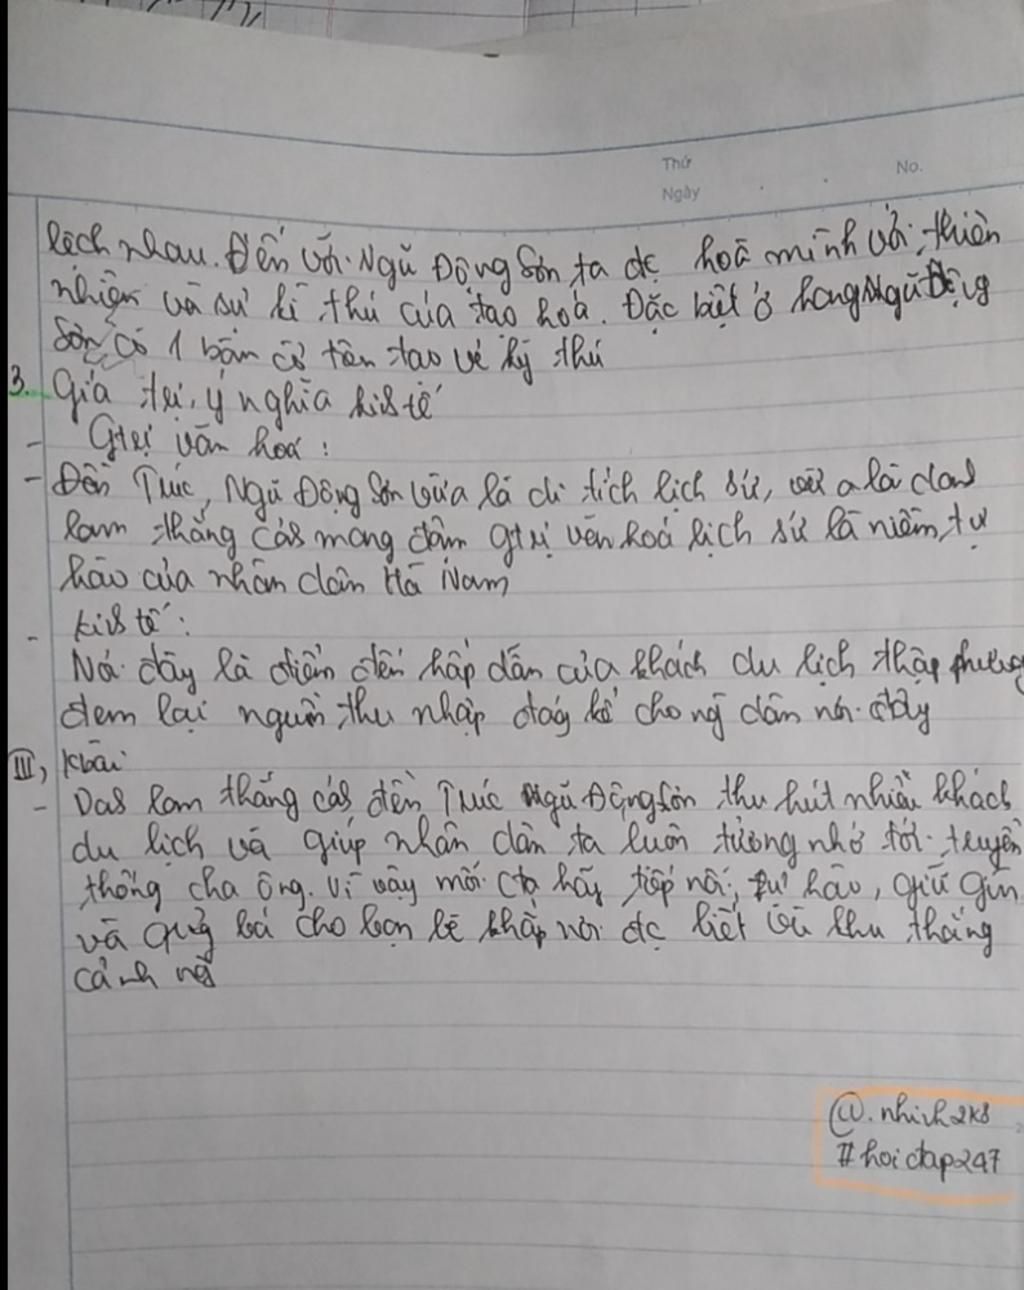 Thứ No.
Ngày
lệch nhau. Đến với Ngũ Động Sơn ta đc hoà mình với thiên
nhiên và sự kì thú của tạo hoá. Đặc biệt ở hang Ngũ Động
Sơn có 1 bàn cờ tiên tạo vẻ kỳ thú
3. Giá trị, ý nghĩa kinh tế
- Gtrị văn hoá:
- Đền Trúc, Ngũ Động Sơn vừa là di tích lịch sử, vừa là danh
lam thắng cảnh mang đậm gtrị văn hoá lịch sử là niềm tự
hào của nhân dân Hà Nam
- kinh tế:
Nơi đây là điểm đến hấp dẫn của khách du lịch thập phương
đem lại nguồn thu nhập đáng kể cho ng dân nơi đây
III, Kbài
- Danh lam thắng cảnh đền Trúc Ngũ Động Sơn thu hút nhiều khách
du lịch và giúp nhân dân ta luôn tưởng nhớ tới truyền
thống cha ông. Vì vậy mỗi cta hãy tiếp nối, tự hào, giữ gìn
và quảng bá cho bạn bè khắp nơi đc biết về khu thắng
cảnh này
@.nhinh2k8
#hoidap247